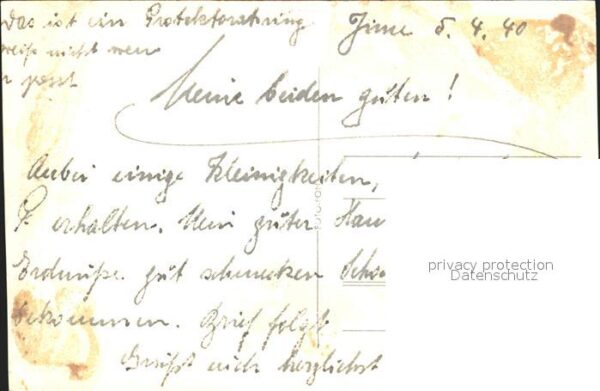 Das ist ein Protektoratsring
weiß nicht wem
r passt
5. 4. 40
Meine beiden guten!
Anbei einige Kleinigkeiten,
P. erhalten. Mein guter Han
Erdnüße gut schmecken Scho
bekommen. Brief folgt
Grüßt euch herzlichst
FOTO-FON
privacy protection
Datenschutz